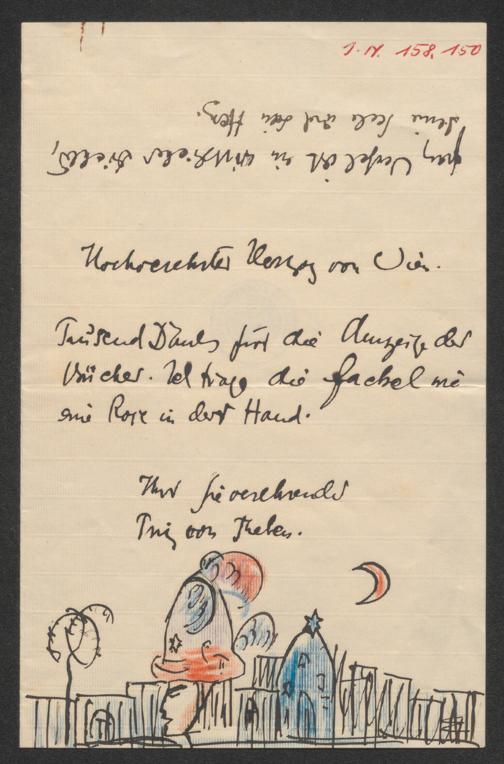 J.N. 158.150
Franz Werfel ist ein wirklicher Dichter,
seine Seele und sein Herz.
Hochverehrter Herzog von Wien.
Tausend Dank für die Anzeige der
Bücher. Ich trage die Fackel wie
eine Rose in der Hand.
Ihr Sie verehrender
Prinz von Theben.